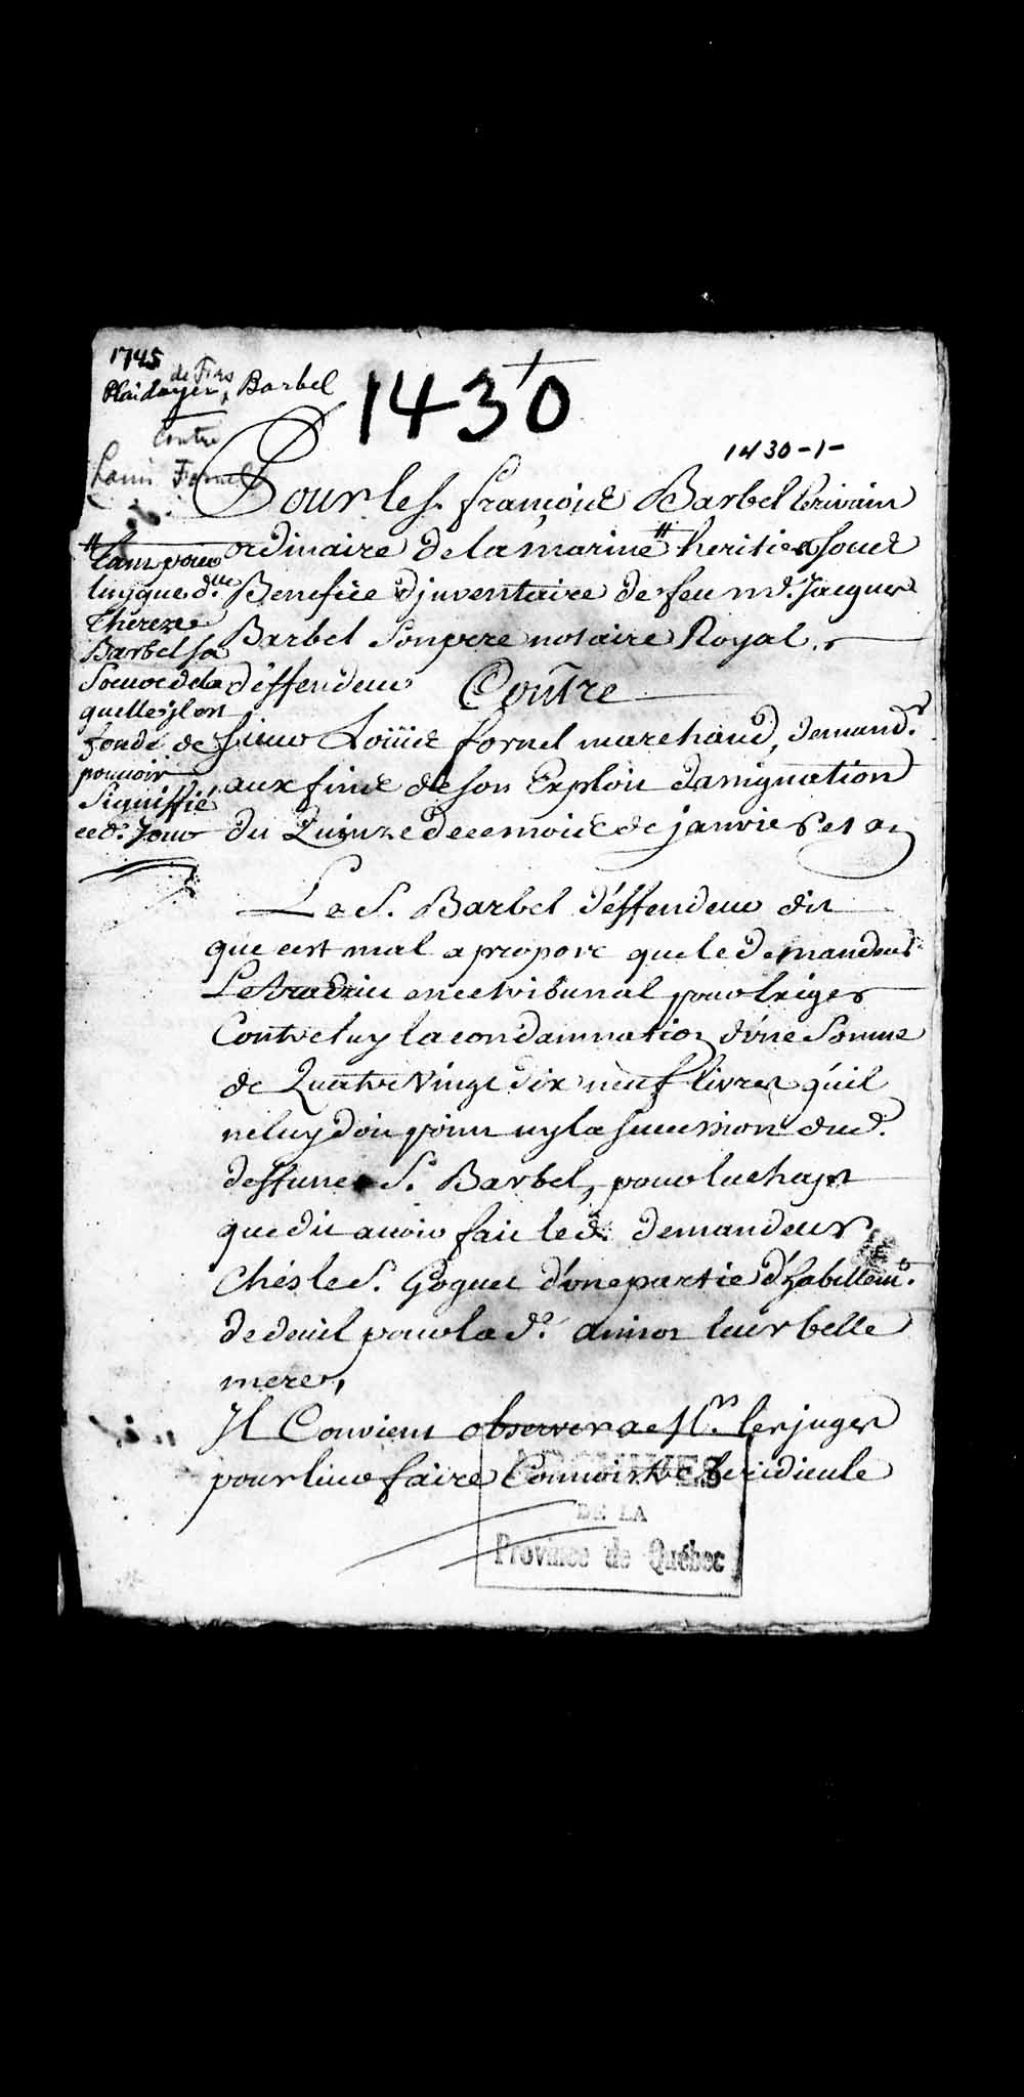 1745
de Frs
Plaidoyer, Barbel
contre
Louis Fornel
1430
1430-1-
Pour le S. françois Barbel Ecrivain
ordinaire de la marine # heritier sous
Benefice d'inventaire de feu md. Jacques
Barbel Son pere notaire Royal.
déffendeur Contre
Sieur Loüis fornel marchand, demandr.
aux fins de son Exploit dassignation
du Quinze de ce mois de janvier et an
# tant pour
luy que dlle
Thereze
Barbel sa
Soeur de la
quelle jl est
fondé de
pouvoir
Signiffié
ced. Jour
Le S. Barbel déffendeur dit
que cest mal a propos que le demandeur
Le traduit en ce tribunal pour Exiger
Contre luy la condamnation d'une Somme
de Quatre Vingt dix neuf livres qu'il
ne luy doit point ny la succession dud.
deffunct S. Barbel, pour lachapt
que dit avoir fait led. demandeur
Chés le S. Goguet d'une partie d'habillemt.
de deuil pour la de. amiot leur belle
mere,
Il Convient observer a Mrs. les juges
pour leur faire Connoistre le ridicule
ARCHIVES
DE LA
Province de Québec